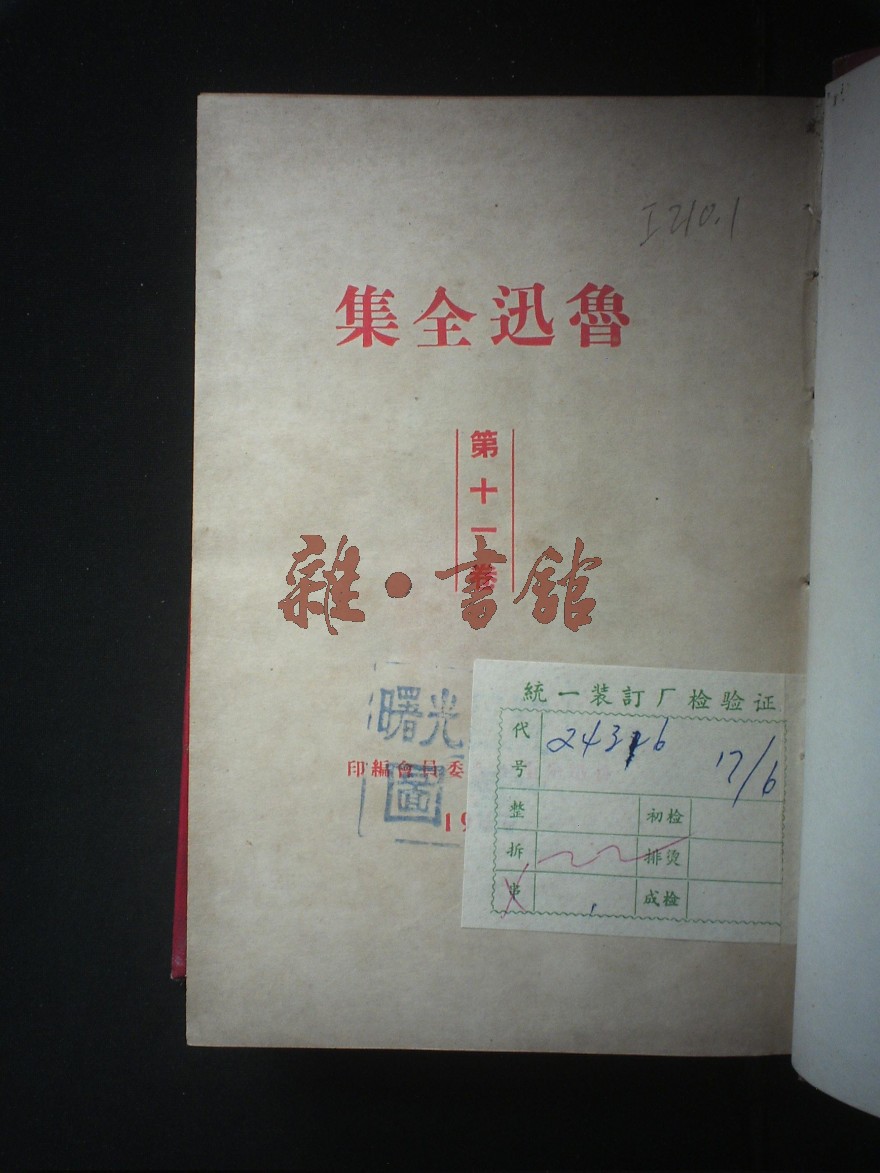 I210.1
魯迅全集
第十一卷
雜·書館
曙光
圖
委員會編印
19
統一装訂厂检验证
代号 24316 17/6
整 初检
拆 排烫
串 成检